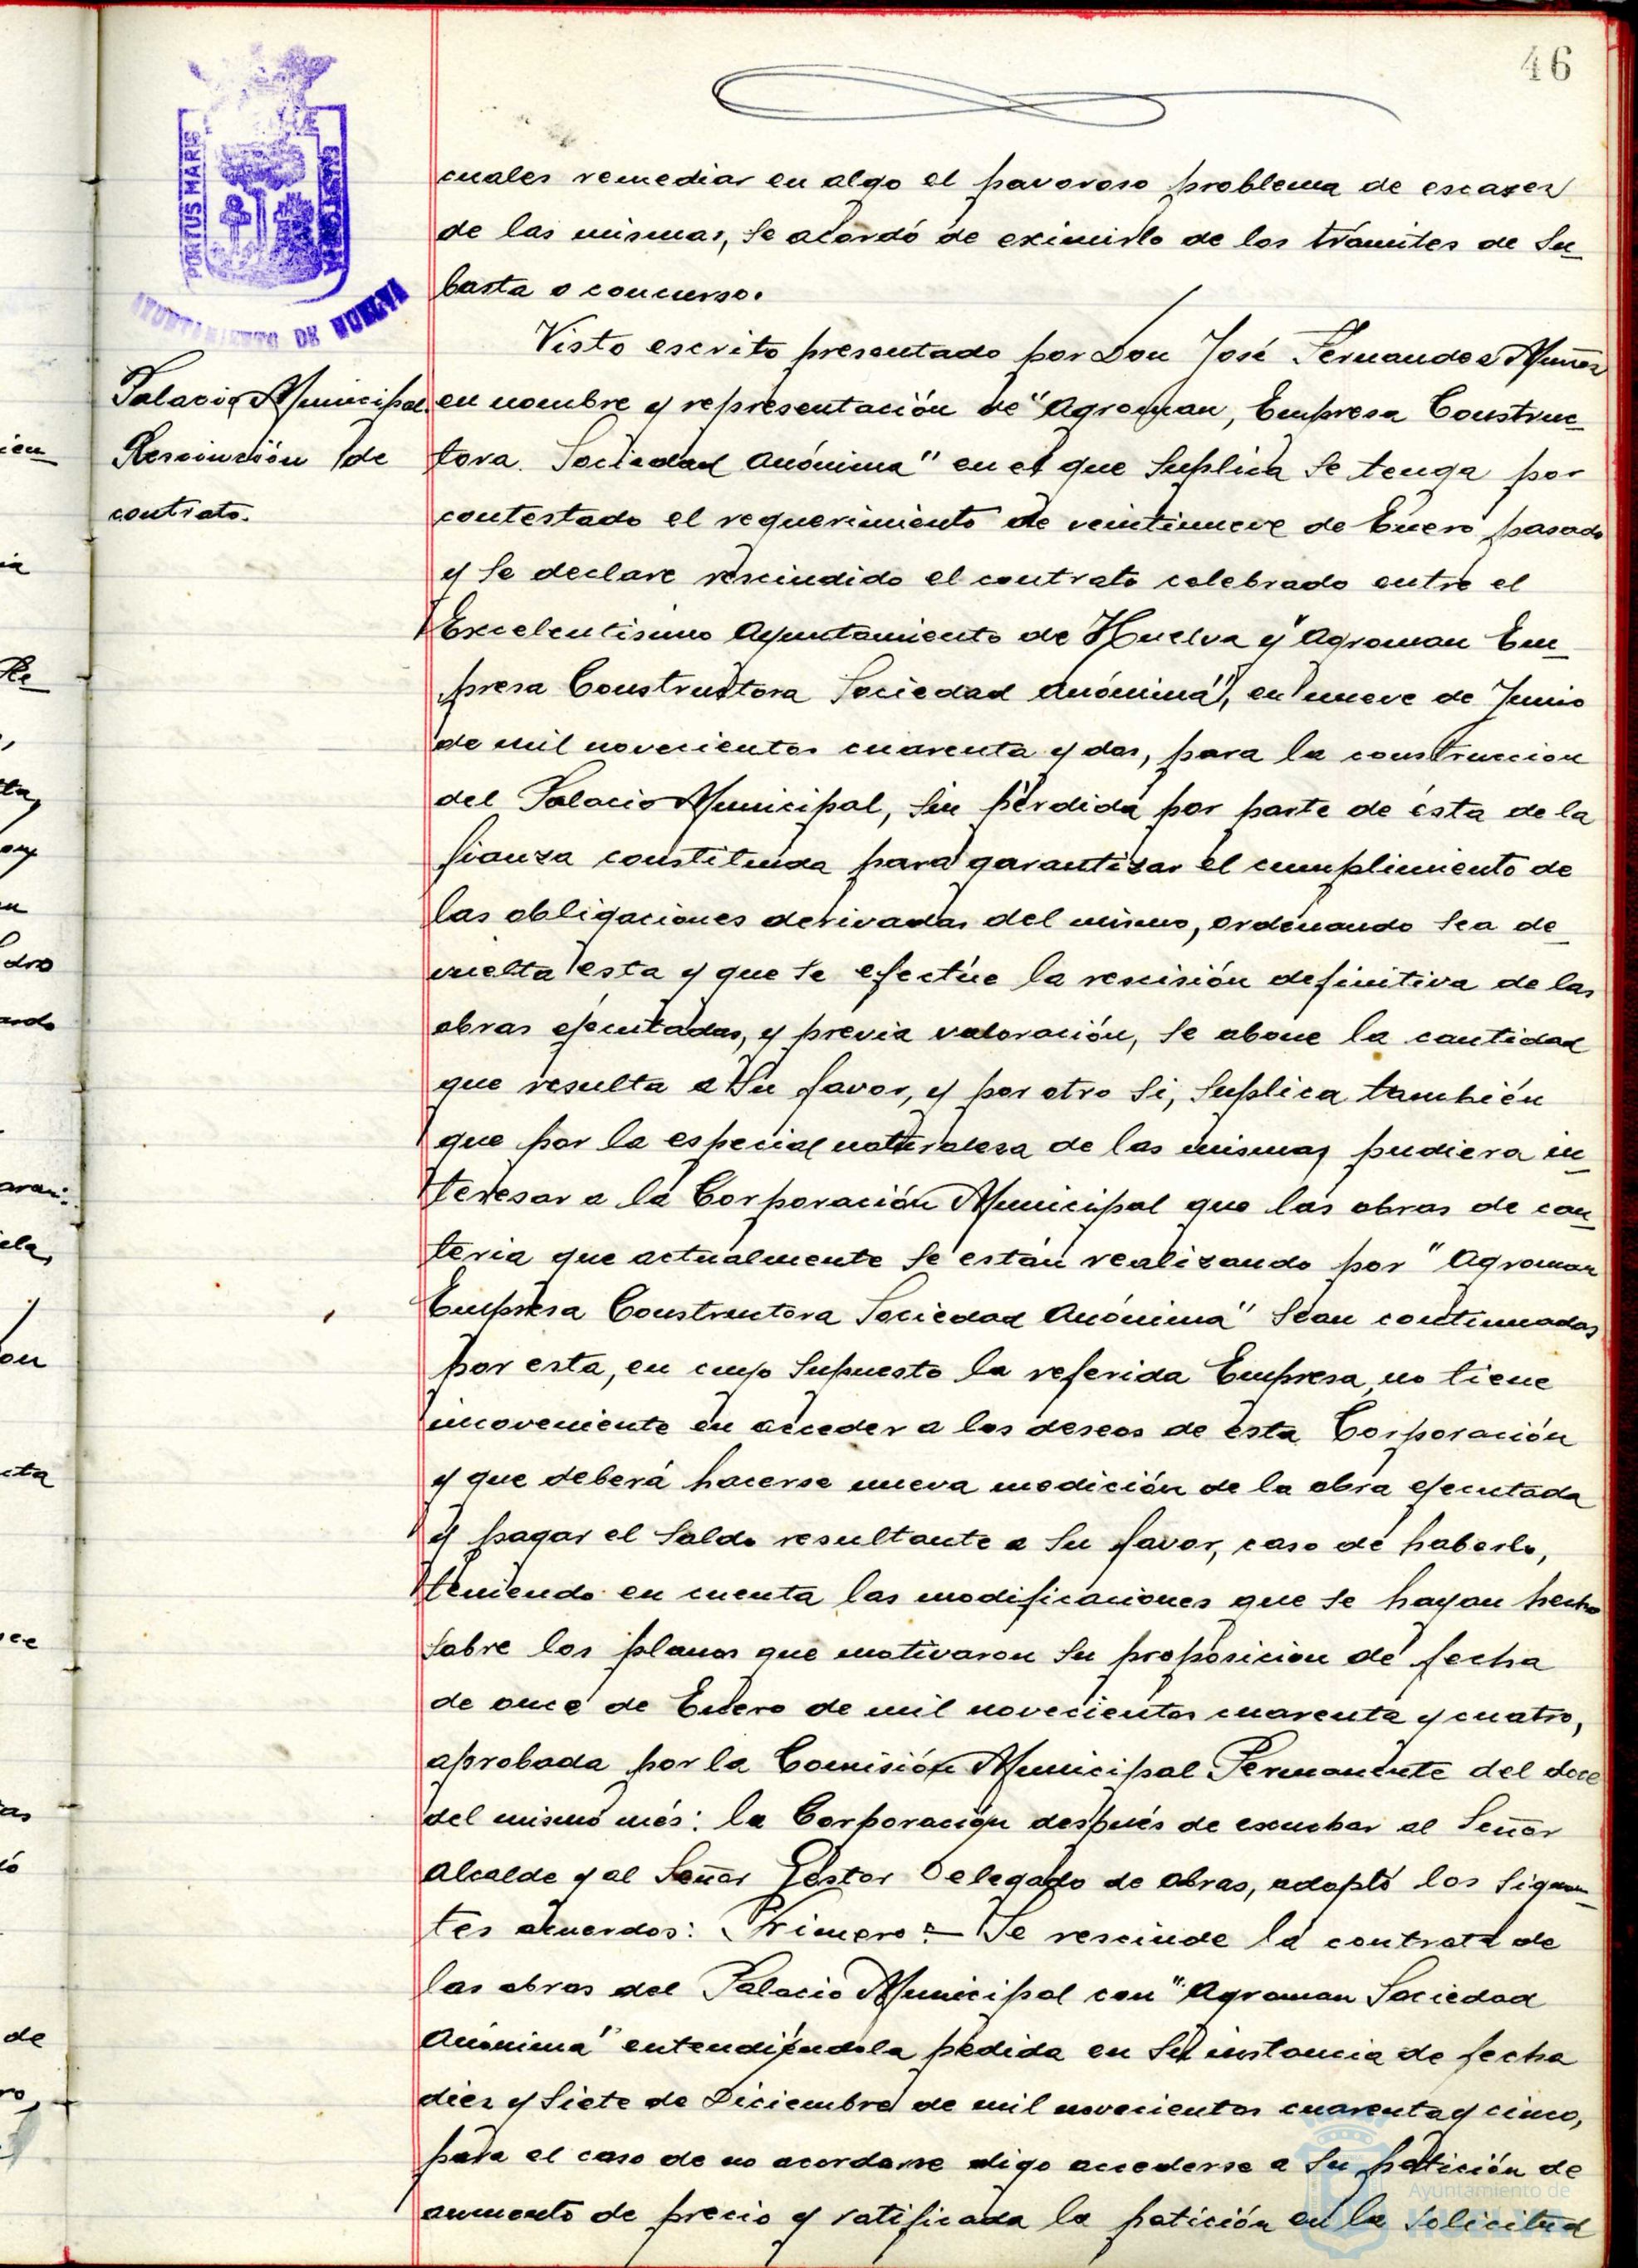 46
PORTUS MARIS
AYUNTAMIENTO DE HUELVA
cuales remediar en algo el pavoroso problema de escasez
de las mismas, se acordó de eximirlo de los trámites de su-
basta o concurso.
Visto escrito presentado por Don José Fernandez Muñoz
Palacio Municipal
en nombre y representación de "Agroman, Empresa Construc-
Rescinción de
tora. Sociedad Anónima" en el que suplica se tenga por
contrato.
contestado el requerimiento de veintinueve de Enero pasado
y se declare rescindido el contrato celebrado entre el
Excelentisimo Ayuntamiento de Huelva y "Agroman Em-
presa Constructora Sociedad Anónima", en nueve de Junio
de mil novecientos cuarenta y dos, para la construccion
del Palacio Municipal, sin pérdida por parte de ésta de la
fianza constituida para garantizar el cumplimiento de
las obligaciones derivadas del mismo, ordenando sea de-
vuelta esta y que se efectúe la rescisión definitiva de las
obras ejecutadas, y previa valoración, se abone la cantidad
que resulta a su favor, y por otro si, suplica también
que por la especial naturaleza de las mismas pudiera in-
teresar a la Corporación Municipal que las obras de can-
teria que actualmente se están realizando por "Agroman
Empresa Constructora Sociedad Anónima" sean continuadas
por esta, en cuyo supuesto la referida Empresa, no tiene
incoveniente en acceder a los deseos de ésta Corporación
y que deberá hacerse nueva medición de la obra ejecutada
y pagar el saldo resultante a su favor, caso de haberlo,
teniendo en cuenta las modificaciones que se hayan hecho
sobre los planos que motivaron su proposicion de fecha
de once de Enero de mil novecientos cuarenta y cuatro,
aprobada por la Comisión Municipal Permanente del doce
del mismo més: la Corporación después de escuchar al Señor
Alcalde y al Señor Gestor Delegado de obras, adoptó los siguien-
tes acuerdos: Primero = Se rescinde la contrata de
las obras del Palacio Municipal con "Agroman Sociedad
Anónima" entendiéndola pedida en su instancia de fecha
diez y siete de Diciembre de mil novecientos cuarenta y cinco,
para el caso de no acordarse digo accederse a su petición de
aumento de precio y ratificada la petición en la solicitud
Ayuntamiento de
HUELVA